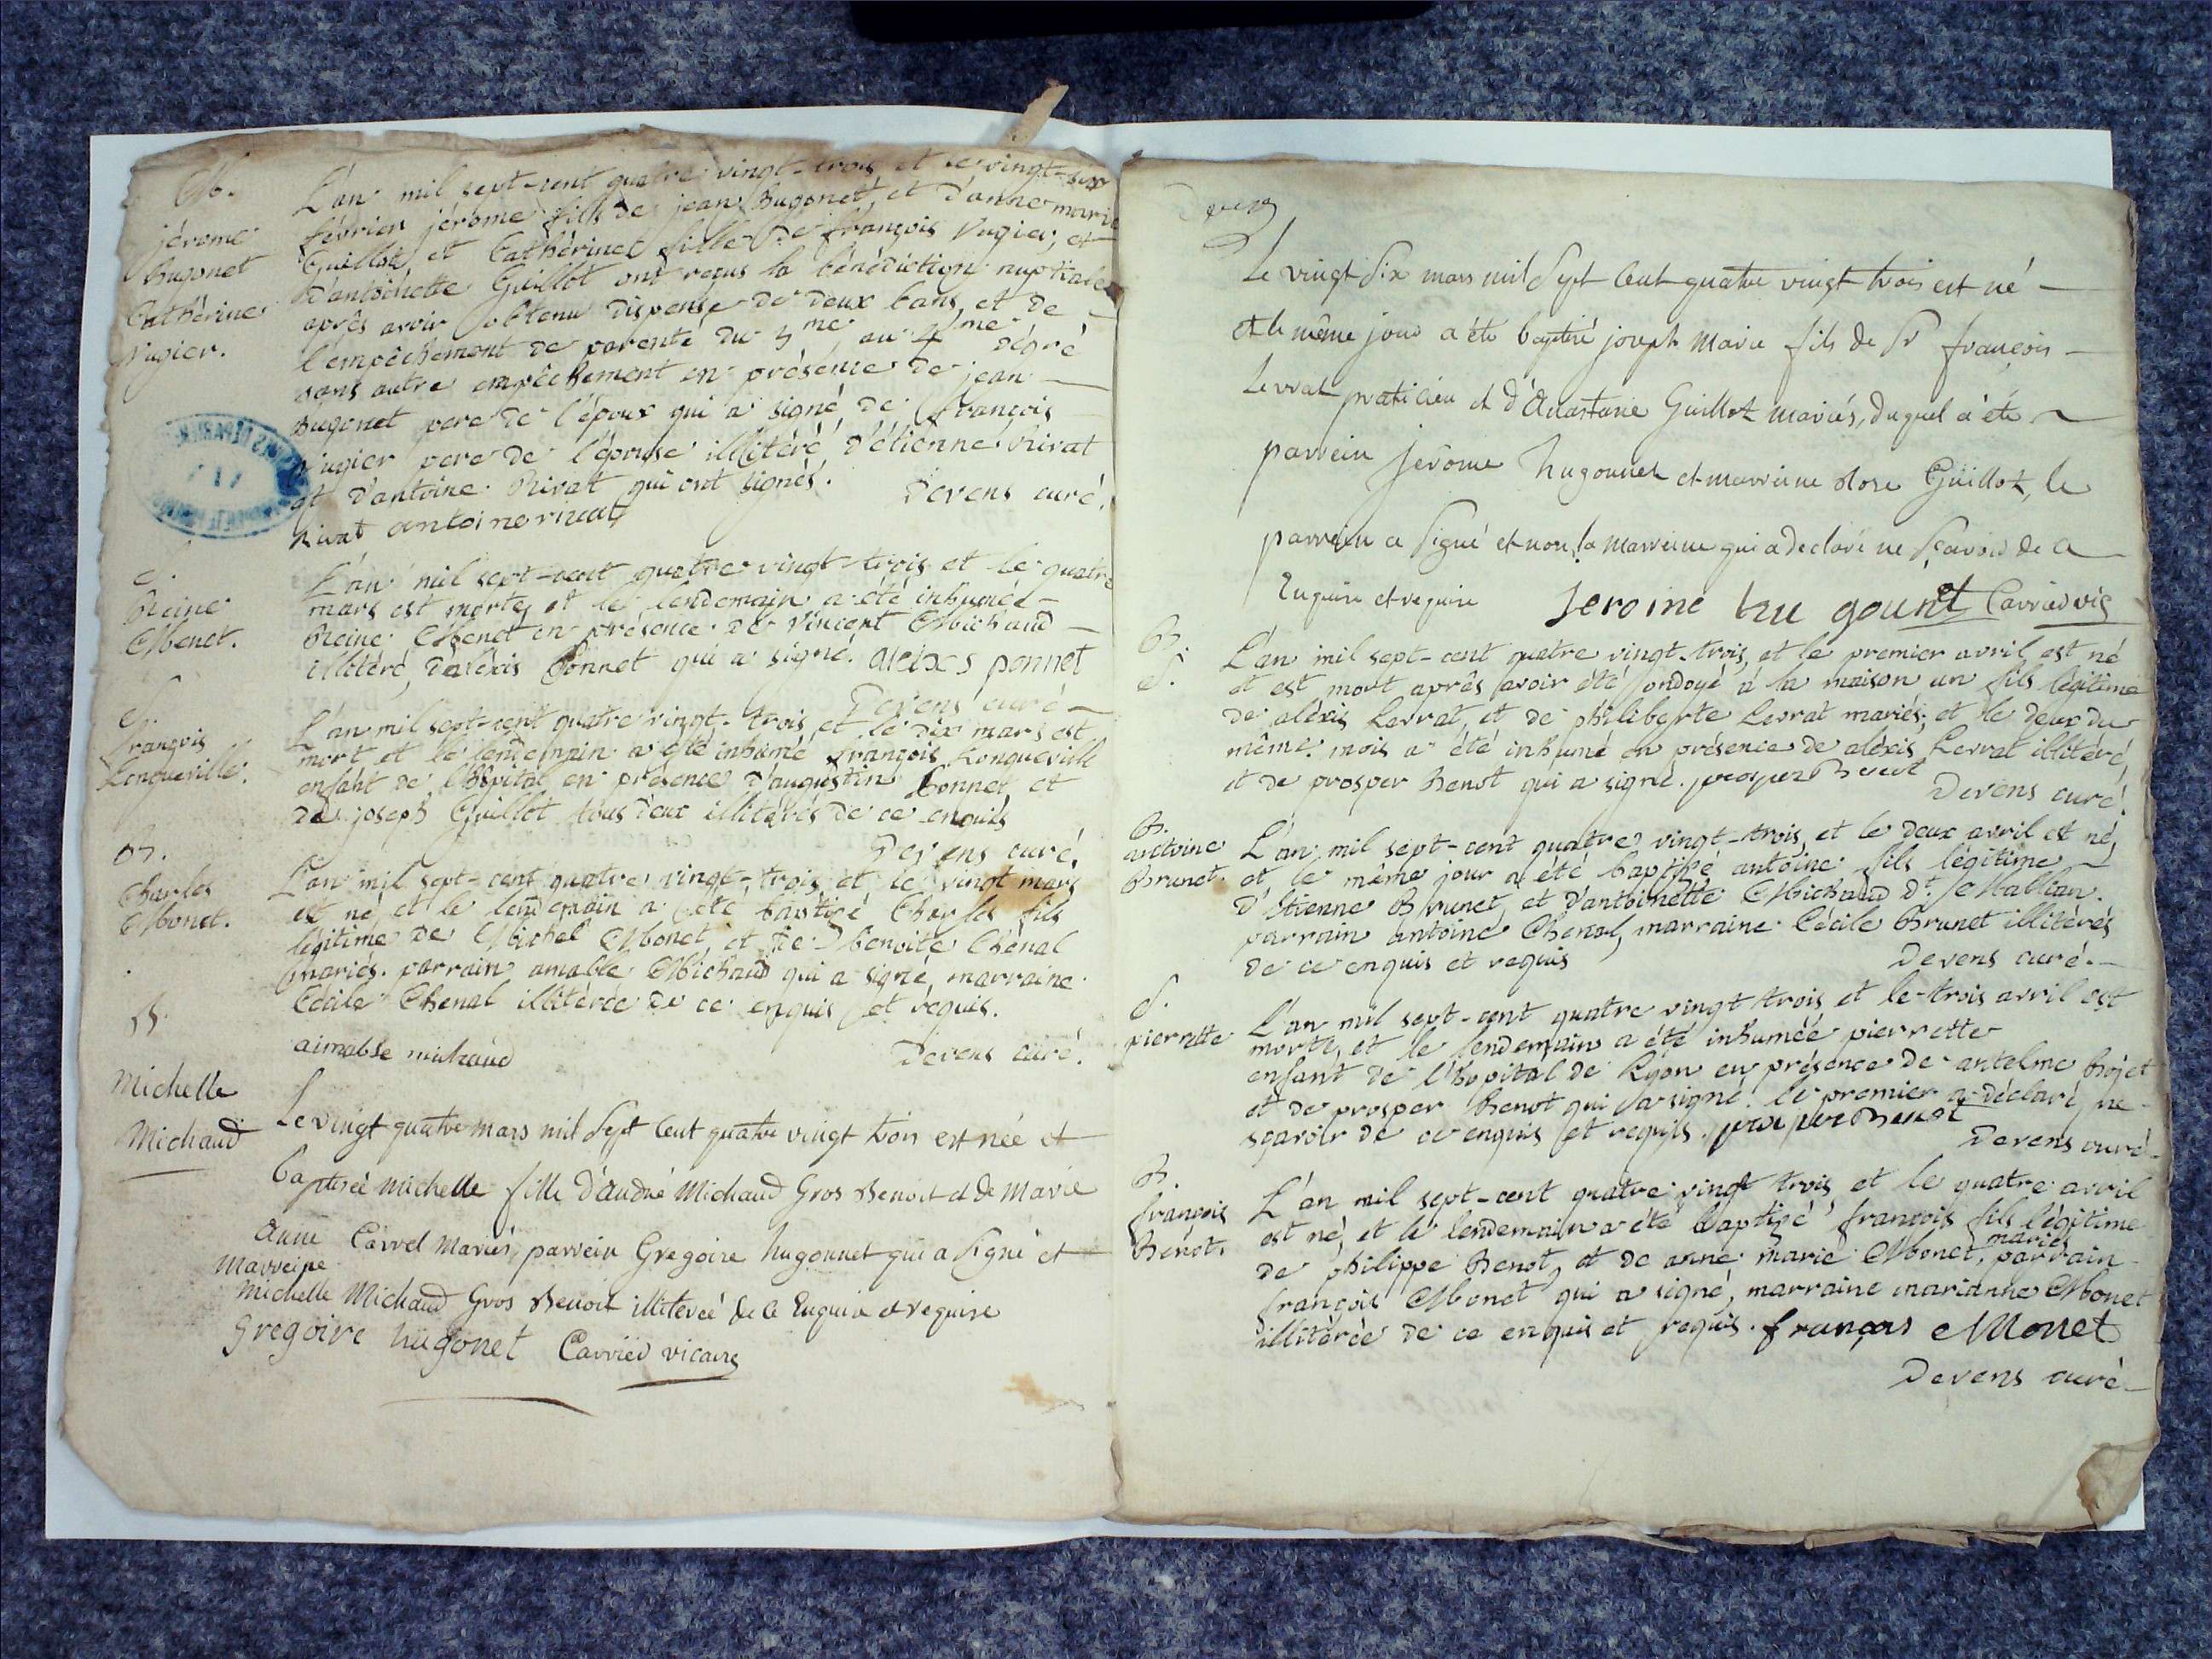 M.
jérome
hugonet
Cathérine
Vugier.
L'an mil sept-cent quatre vingt-trois et le vingt-six
février jérome fils de jean hugonet, et d'anne marie
Guillot, et Cathérine fille de françois Vugier, et
d'antoinette Guillot ont reçus la bénédiction nuptiale
après avoir obtenu dispense de deux bans, et de
l'empêchement de parenté du 3me au 4me dégré
sans autre empêchement en présence de jean
hugonet pere de l'époux qui a signé, de françois
Vugier pere de l'épouse illitéré, d'étienne Rivat
et d'antoine Rivat qui ont signés. Devens curé.
Rivat antoine rivat
S.
Reine
Monet.
L'an mil sept-cent quatre vingt-trois et le quatre
mars est morte, et le lendemain a été inhumée
Reine Monet en présence de Vincent Michaud
illitéré, d'aléxis ponnet qui a signé. aleixs ponnet
Devens curé
S.
françois
Longueville.
L'an mil sept-cent quatre vingt-trois et le dix mars est
mort et le lendemain a été inhumé françois Longueville
enfant de l'hôpital en présence d'augustin ponnet et
de joseph Guillot tous deux illitérés de ce enquis
Devens curé.
B.
Charles
Monet.
L'an mil sept-cent quatre vingt-trois et le vingt mars
est né, et le lendemain a été baptizé Charles fils
légitime de Michel Monet, et de benoite Chenal
mariés. parrain amable Michaud qui a signé, marraine
Cécile Chenal illitérée de ce enquis et requis.
aimable michaud Devens curé.
B.
Michelle
Michaud
Le vingt quatre mars mil Sept Cent quatre vingt trois est née et
Baptisée michelle fille d'andré Michaud Gros Benoit et de Marie
anne Carrel mariés, parrein Gregoire hugonnet qui a signé et
marreine
michelle Michaud Gros Benoit illiterée de ce Enquise et requise
gregoire hugonet Carrier vicaire
Le vingt Six mars mil Sept Cent quatre vingt trois est né
et le même jour a été baptisé joseph Marie fils de Sr françois
Levrat praticien et d'Anastasie Guillot mariés, duquel a été
parrein Jerome hugonnet et marreine Rose Guillot, le
parrein a Signé et non la Marreine qui a declaré ne Sçavoir de ce
Enquise et requise Jerome hu gounet Carrier vic
B.
S.
L'an mil sept-cent quatre vingt-trois, et le premier avril est né
et est mort après avoir été ondoyé à la maison un fils légitime
de aléxis Levrat, et de philiberte Levrat mariés; et le deux du
même mois a été inhumé en présence de aléxis Levrat illitéré,
et de prosper Benot qui a signé. prosper Benot
Devens curé.
B.
antoine
Brunet.
L'an mil sept-cent quatre vingt-trois, et le deux avril est né,
et le même jour a été baptizé antoine fils légitime
d'Etienne Brunet, et d'antoinette Michaud dt Mallean.
parrain antoine Chenal, marraine Cécile Brunet illitérés
de ce enquis et requis Devens curé.
S.
pierrette
L'an mil sept-cent quatre vingt trois et le trois avril est
morte, et le lendemain a été inhumée pierrette
enfant de l'hopital de Lyon en présence de antelme bojet
et de prosper Benot qui a signé. le premier a déclaré ne
sçavoir de ce enquis et requis. prosper Benot
Devens curé
B.
françois
Benot.
L'an mil sept-cent quatre vingt trois et le quatre avril
est né, et le lendemain a été baptizé françois fils légitime
de philippe Benot, et de anne marie Monet, mariés parrain
françois Monet qui a signé, marraine marianne Monet
illitérée de ce enquis et requis. françois Monet
Devens curé